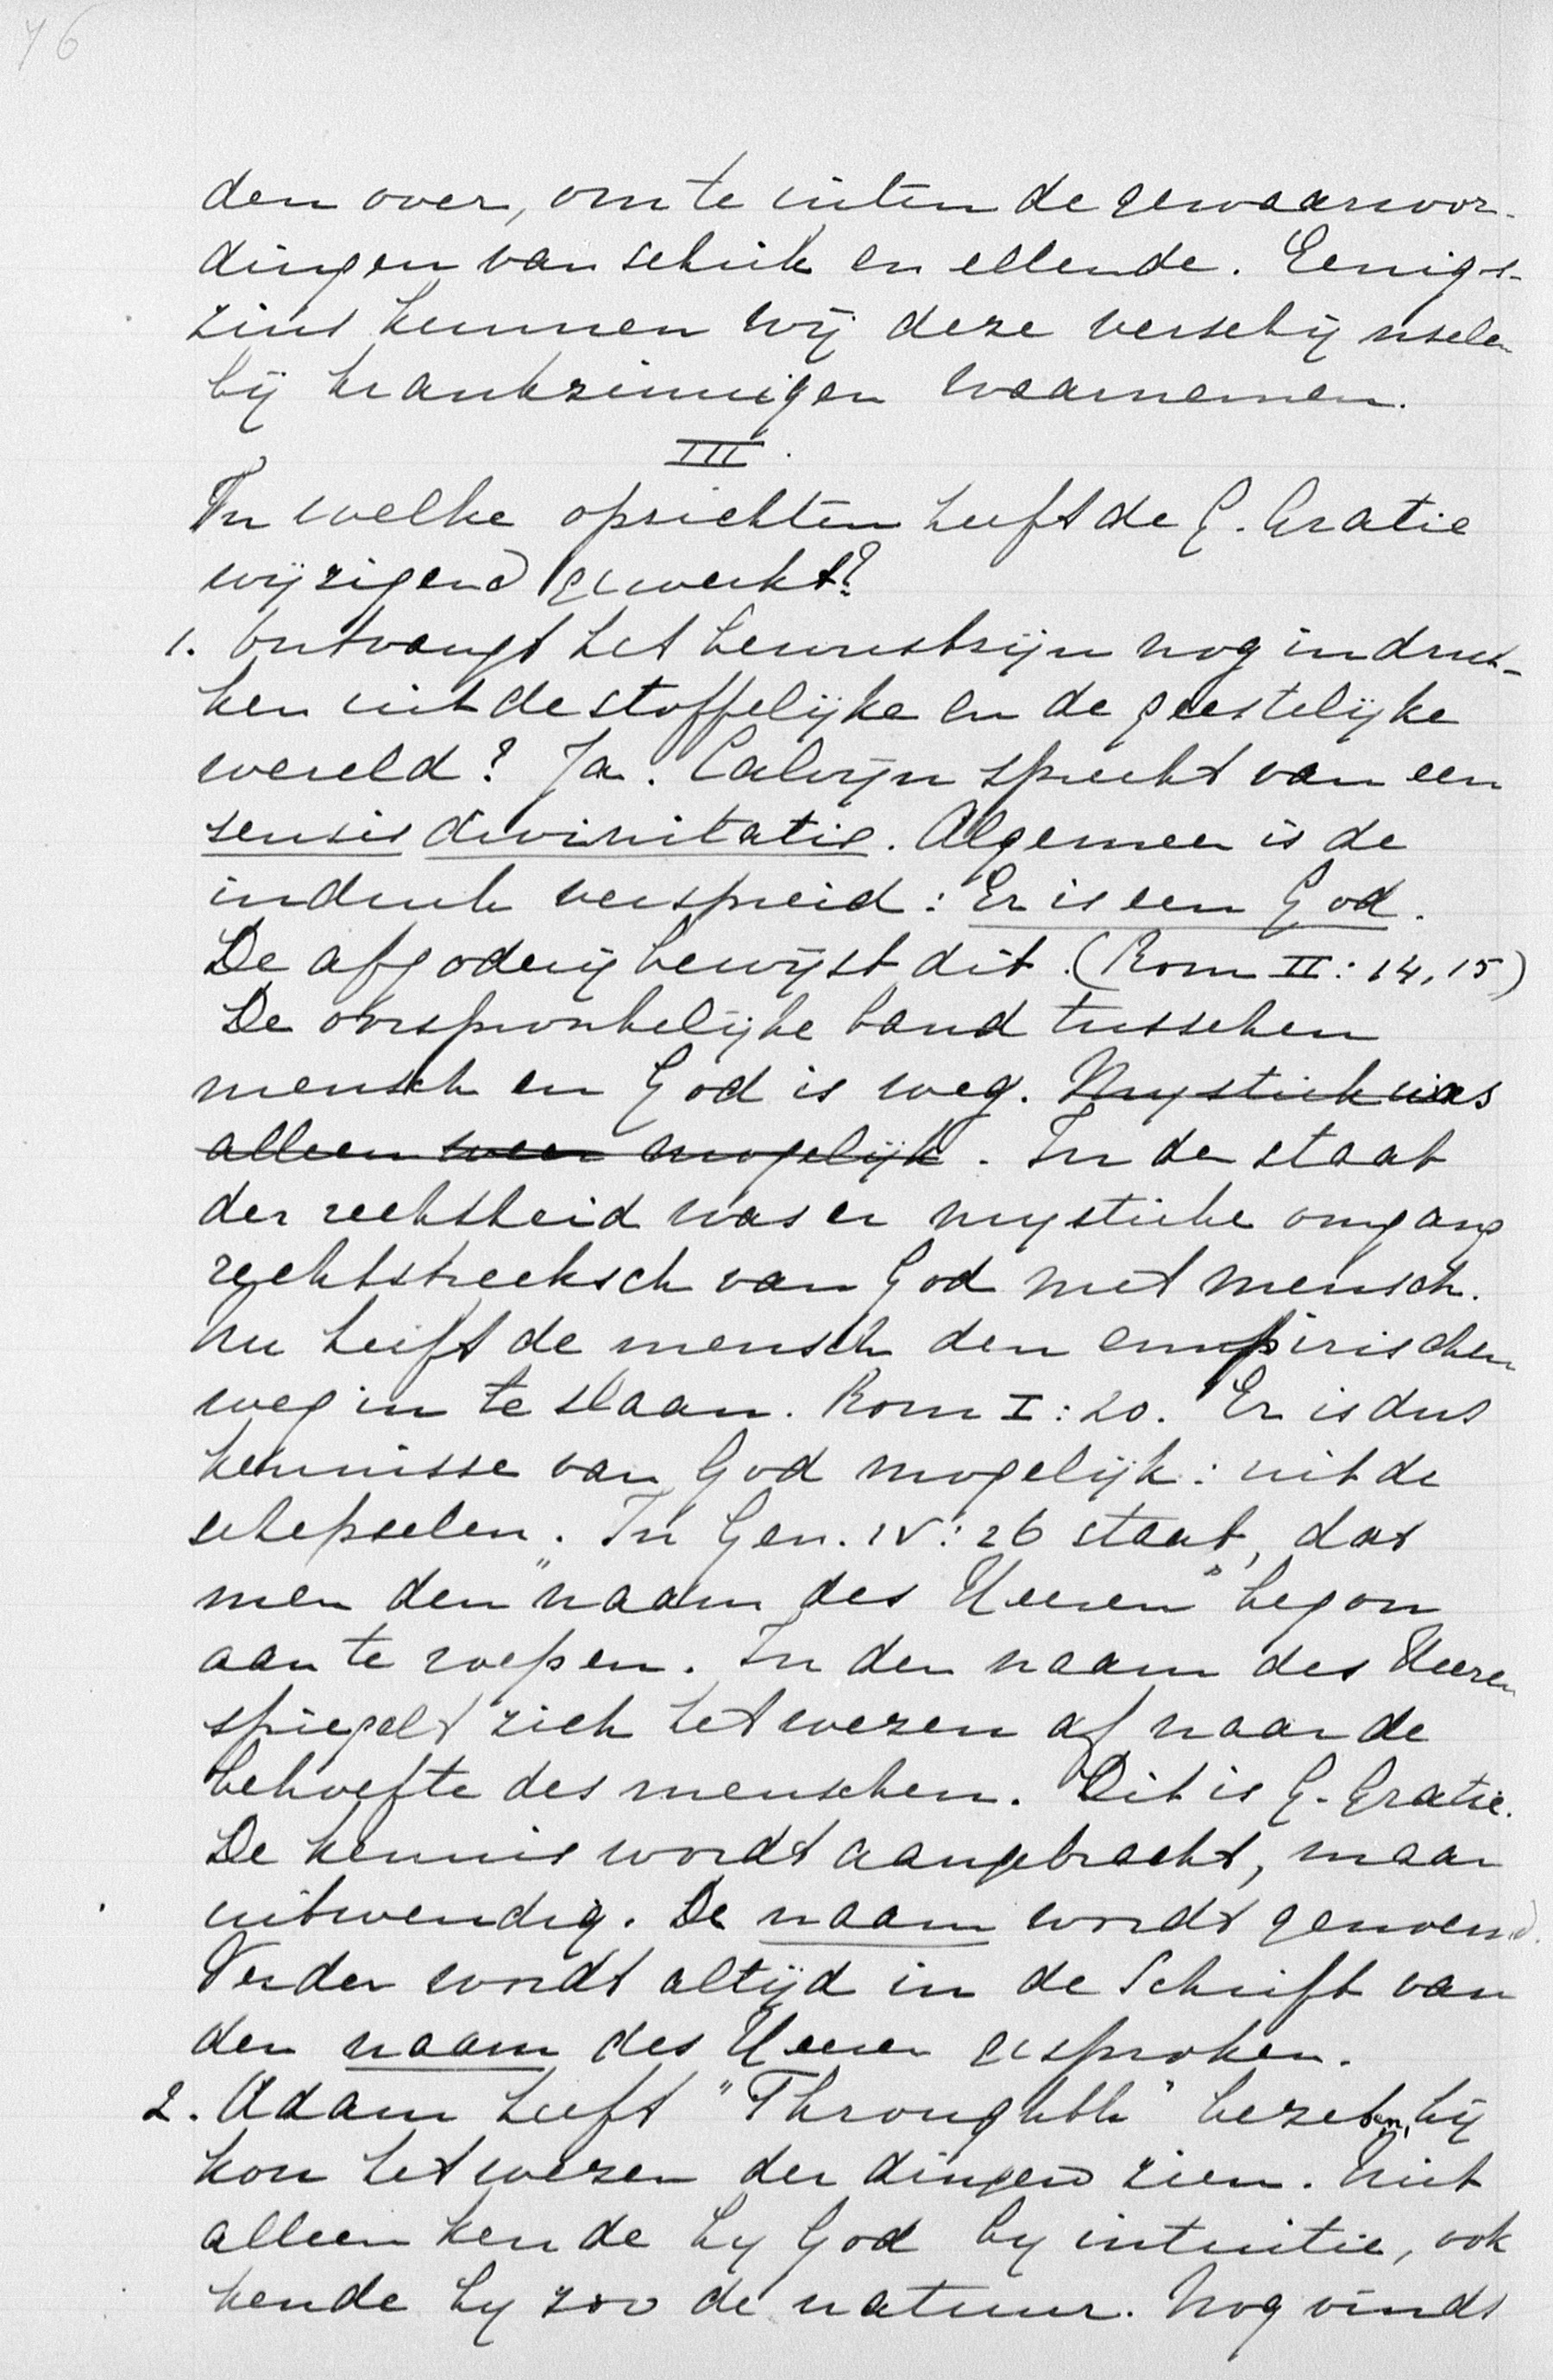 76
den over, om te uiten de gewaarwor-
dingen van schrik en ellende. Eenigs-
zins kunnen wij deze verschijnselen
bij krankzinnigen waarnemen.
III.
In welke opzichten heeft de G. Gratie
wijzigend gewerkt?
1. Ontvangt het bewustzijn nog indruk-
ken uit de stoffelijke en de geestelijke
wereld? Ja. Calvijn spreekt van een
sensis divinitatis. Algemeen is de
indruk verspreid: Er is een God.
De afgoderij bewijst dit. (Rom II: 14, 15)
De oorspronkelijke band tusschen
mensch en God is weg. Mystiek was
alleen mogelijk. In de staat
der rechtheid was er mystieke omgang
rechtstreeksch van God met mensch.
Nu heeft de mensch den empirischen
weg in te slaan. Rom I: 20. Er is dus
kennisse van God mogelijk: uit de
schepselen. In Gen. IV: 26 staat, dat
men den "naam des Heeren" begon
aan te roepen. In den naam des Heeren
spiegelt zich het wezen af naar de
behoefte des menschen. Dit is G. Gratie.
De kennis wordt aangebracht, maar
uitwendig. De naam wordt genoemd.
Verder wordt altijd in de Schrift van
den naam des Heeren gesproken.
2. Adam heeft "Throughth" bezeten, hij
kon het wezen der dingen zien. Niet
alleen kende hy God by intuitie, ook
kende hy zoo de natuur. Nog vindt